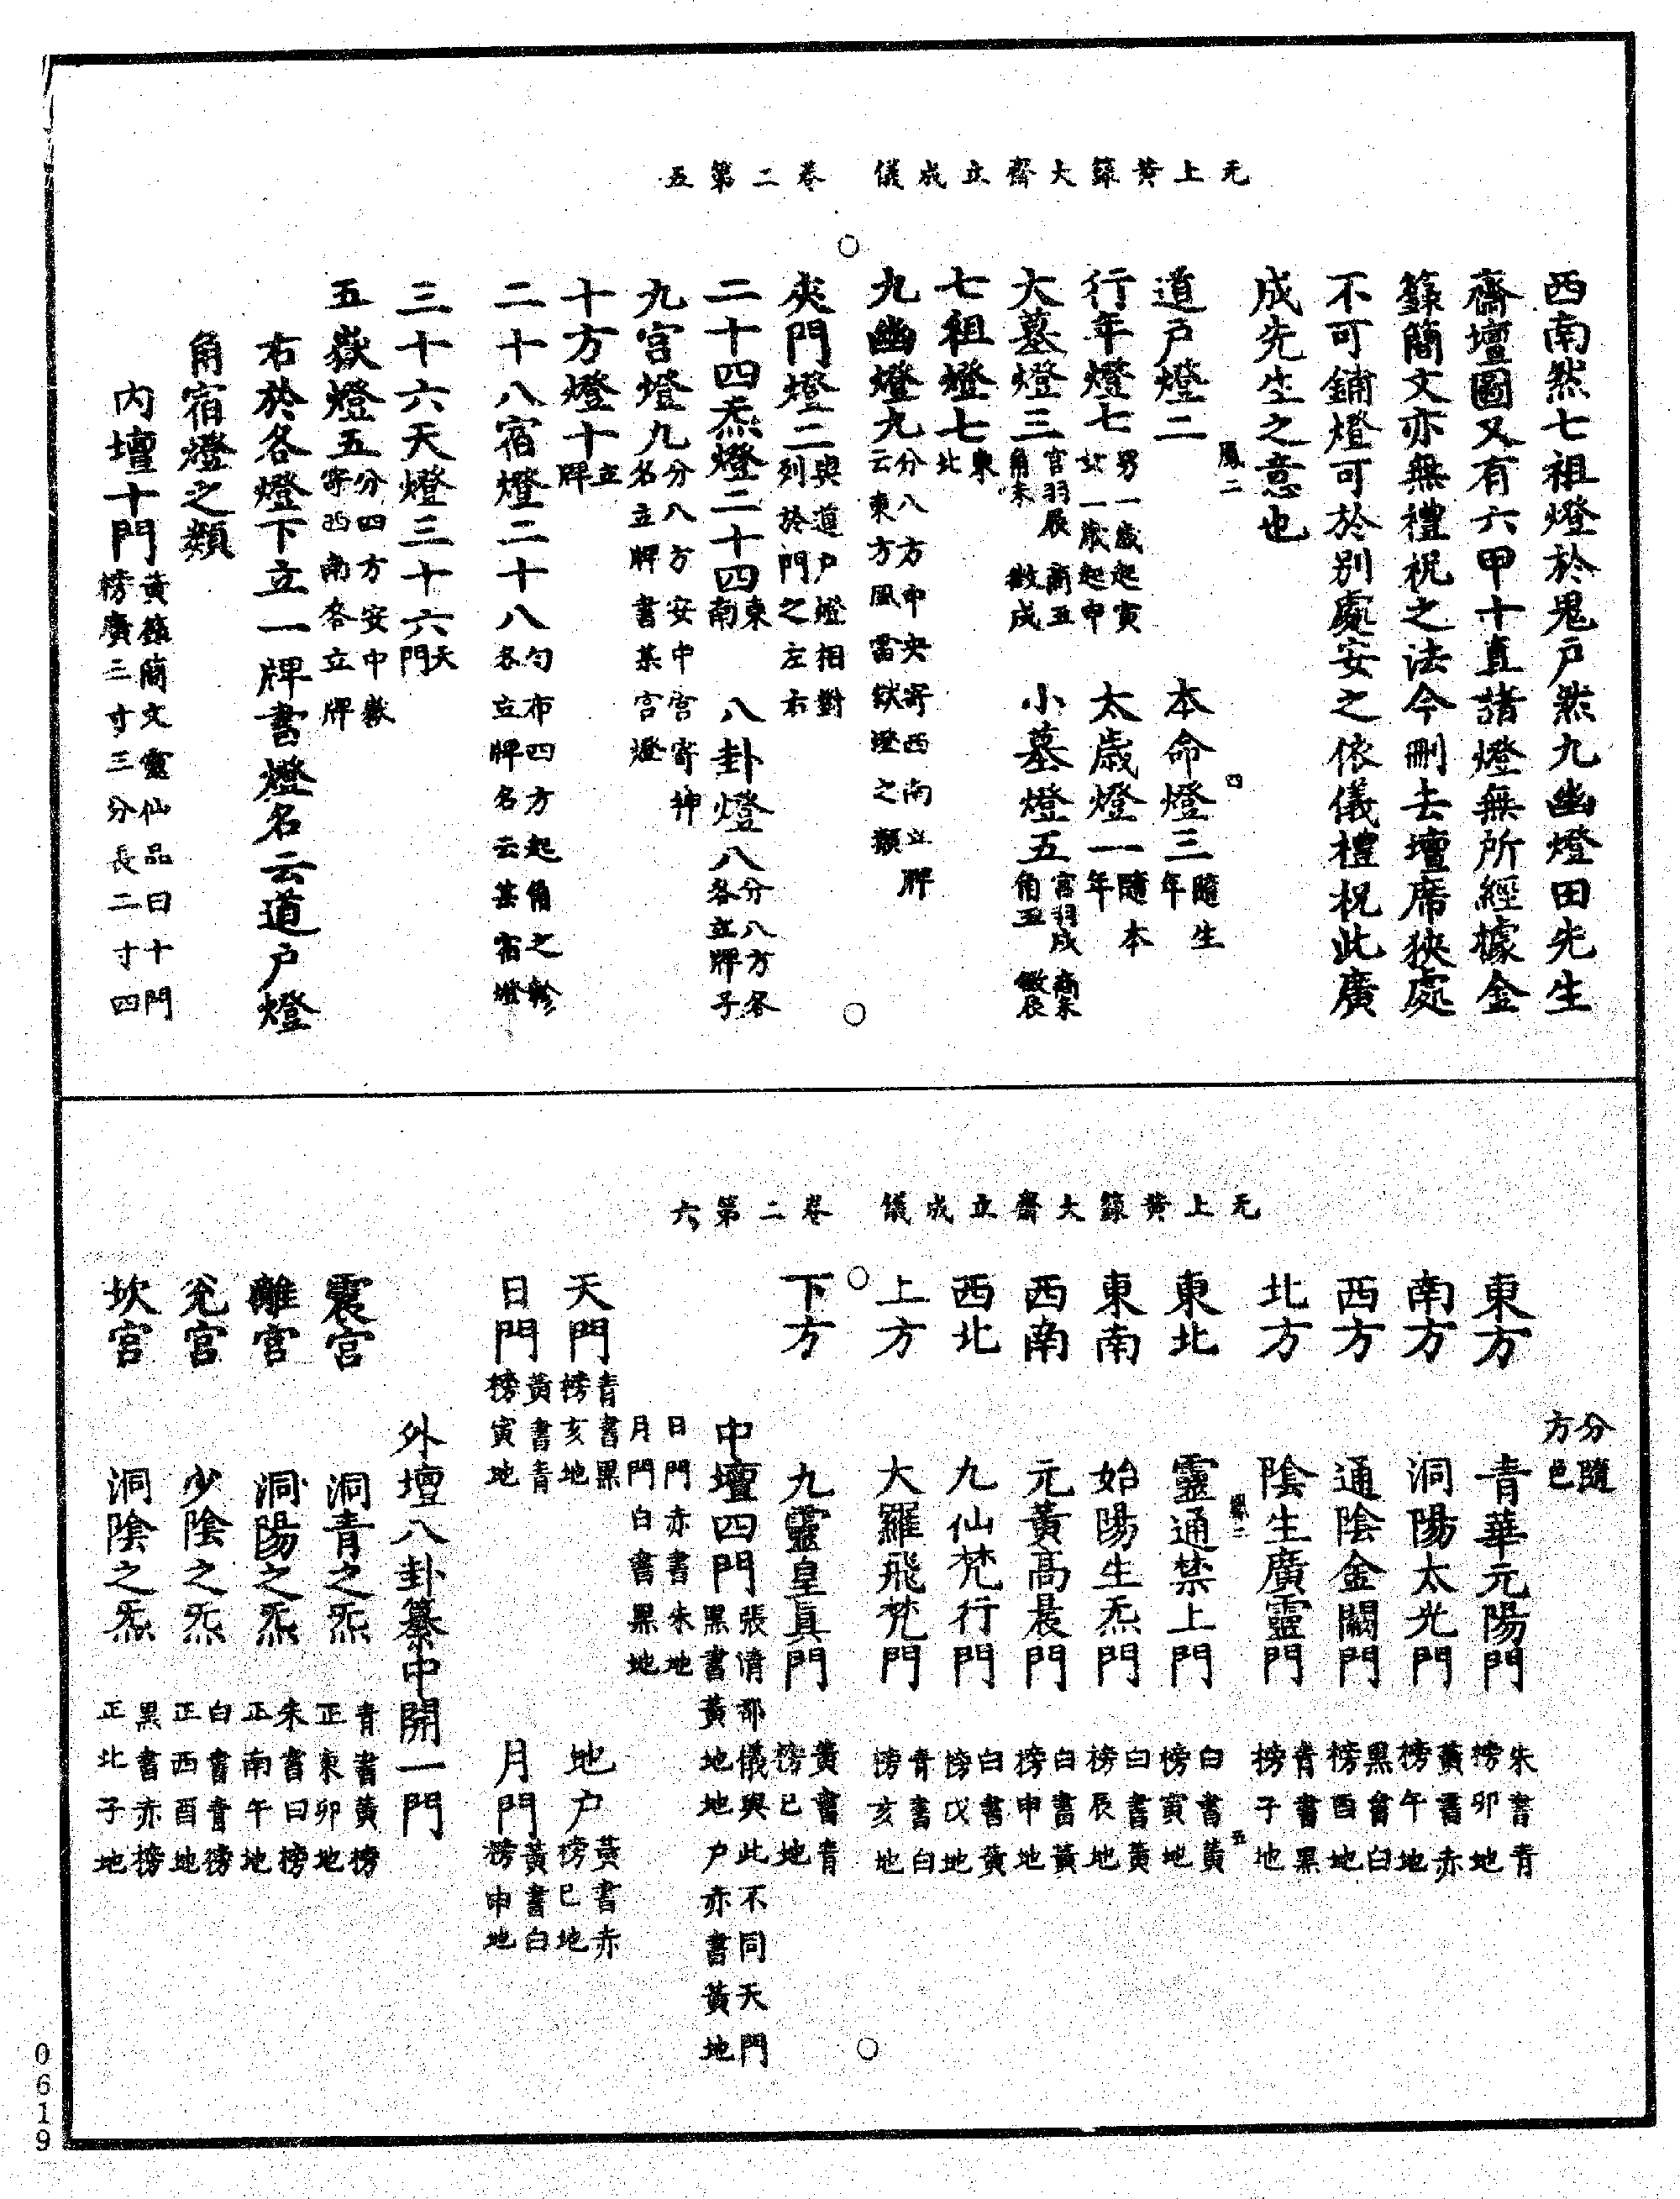 无上黃籙大齋立成儀　卷二第五
西南然七祖燈於鬼戶然九幽燈田先生
齋壇圖又有六甲十直諸燈無所經據金
籙簡文亦無禮祝之法今刪去壇席狹處
不可鋪燈可於別處安之依儀禮祝此廣
成先生之意也
鳳二　四
道戶燈二　本命燈三隨生年
行年燈七男一歲起寅女一歲起申　太歲燈一隨本年
大墓燈三宮羽辰商丑角未徵戌　小墓燈五宮羽戌商未角丑徵辰
七祖燈七東北
九幽燈九分八方中央寄西南立牌云東方風雷獄燈之類
夾門燈二與道戶燈相對列於門之左右
二十四炁燈二十四東南　八卦燈八分八方各各立牌子
九宮燈九分八方安中宮寄坤名立牌書某宮燈
十方燈十立牌
二十八宿燈二十八勻布四方起角之軫各立牌名云某宿燈
三十六天燈三十六天門
五嶽燈五分四方安中嶽寄西南各立牌
右於各燈下立一牌書燈名云道戶燈
角宿燈之類
內壇十門黃籙簡文靈仙品曰十門榜廣三寸三分長二寸四
无上黃籙大齋立成儀　卷二第六
分隨方色
東方　青華元陽門　朱書青榜卯地
南方　洞陽太光門　黃書赤榜午地
西方　通陰金闕門　黑書白榜酉地
北方　陰生廣靈門　青書黑榜子地
鳳二　五
東北　靈通禁上門　白書黃榜寅地
東南　始陽生炁門　白書黃榜辰地
西南　元黃高晨門　白書黃榜申地
西北　九仙梵行門　白書黃榜戌地
上方　大羅飛梵門　青書白榜亥地
下方　九靈皇真門　黃書青榜巳地
中壇四門張清都儀與此不同天門黑書黃地地戶赤書黃地
日門赤書朱地月門白書黑地
天門青書黑榜亥地　地戶黃書赤榜巳地
日門黃書青榜寅地　月門黃書白榜申地
外壇八卦纂中開一門
震宮　洞青之炁　青書黃榜正東卯地
離宮　洞陽之炁　朱書曰榜正南午地
兊宮　少陰之炁　白書青榜正西酉地
坎宮　洞陰之炁　黑書赤榜正北子地
0619